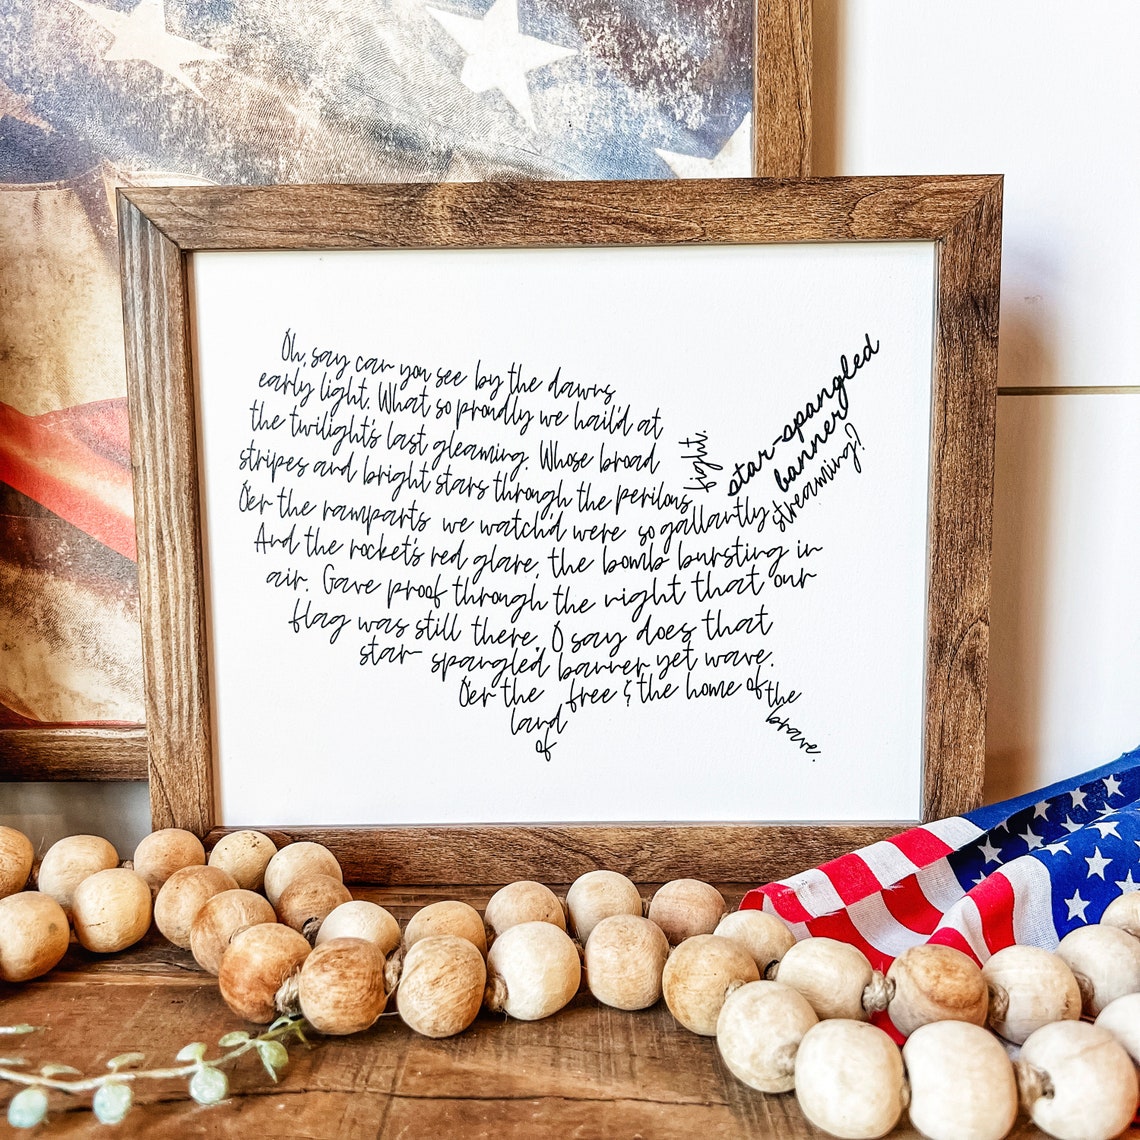 Oh, say can you see by the dawn's
early light. What so proudly we hail'd at
the twilight's last gleaming. Whose broad
stripes and bright stars through the perilous
fight.
O'er the ramparts we watch'd were so gallantly
streaming?
star-spangled
banner
And the rocket's red glare, the bomb bursting in
air. Gave proof through the night that our
flag was still there. O say does that
star-spangled banner yet wave.
O'er the
land
of
free & the home of the
brave.